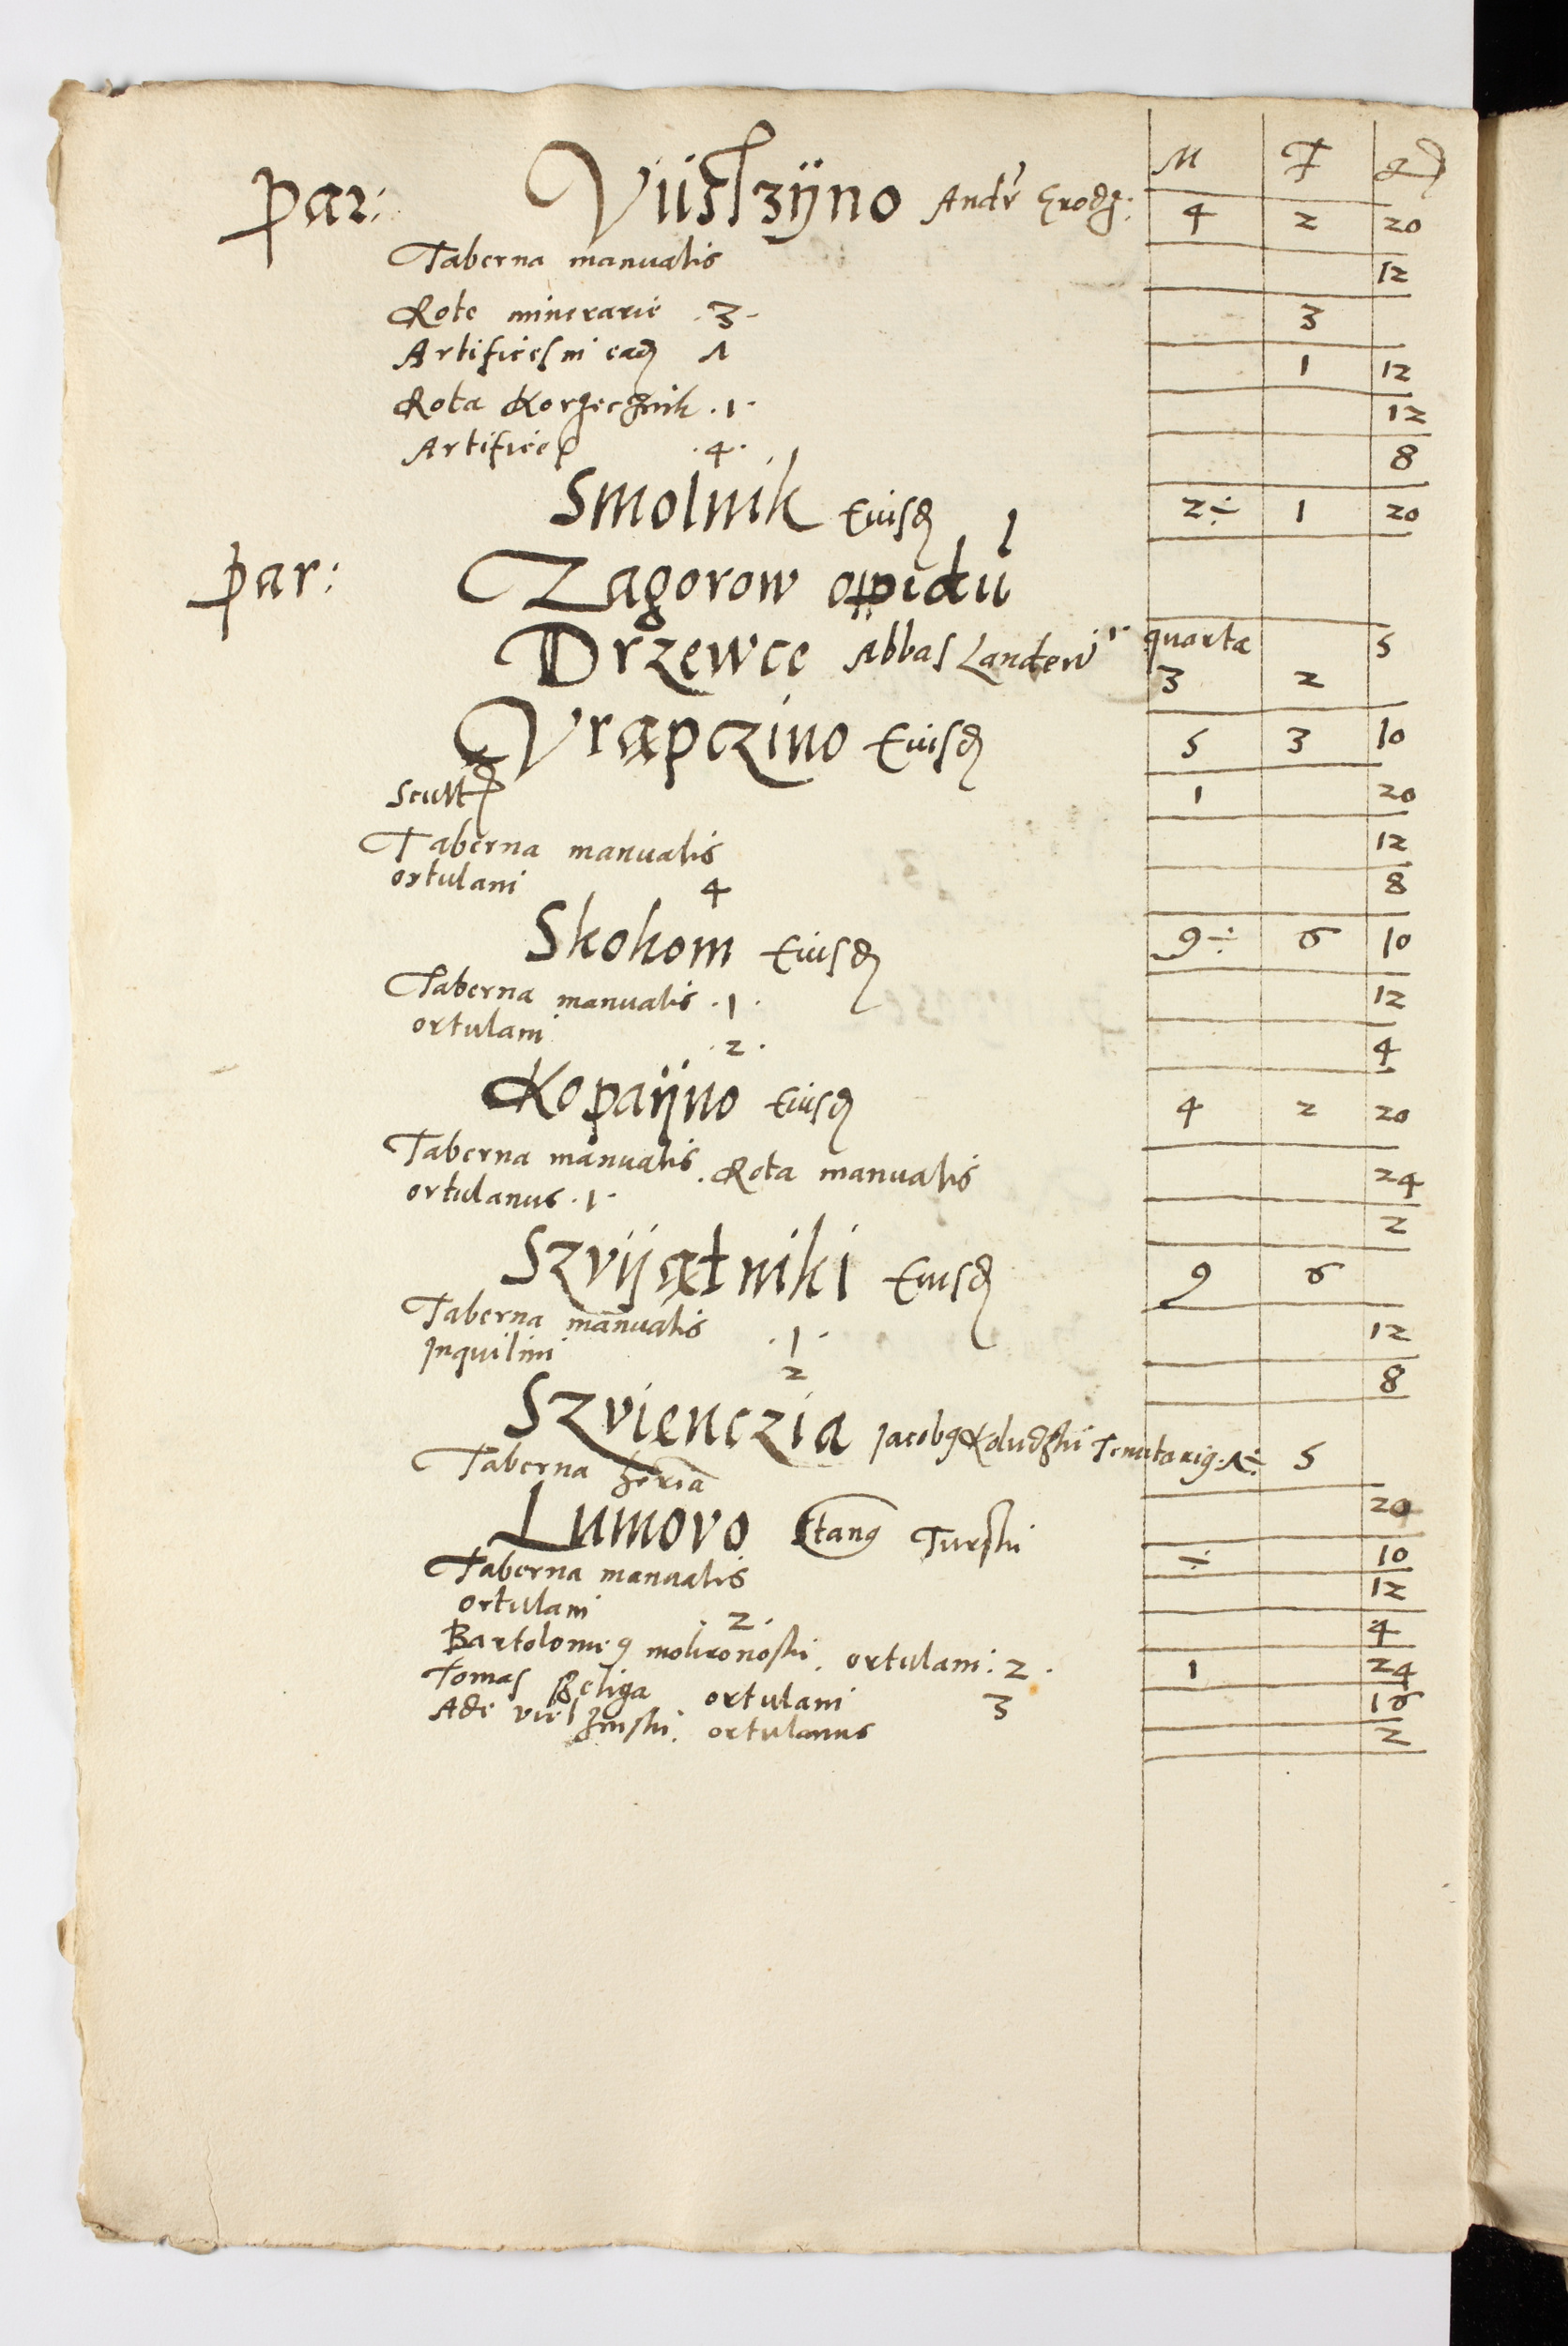 M F g
par: Viistzÿno Andr 4 2 20
Taberna manualis 12
Rote minerarie .3. 3
Artifices in eadẽ 1 1 12
Rota Korzecznik .1. 12
Artifices .4. 8
Smolnik Eiusdẽ 2÷ 1 20
par: Zagorow opidũ
Drzewce Abbas Landeñ quarta 5
3 2
Vrapczino Eiusdẽ 5 3 10
Scult 1 20
Taberna manualis 12
ortulani 4 8
Skokom Eiusdẽ 9÷ 6 10
Taberna manualis .1. 12
ortulani .2. 4
Kopaÿno Eiusdẽ 4 2 20
Taberna manualis. Rota manualis 24
ortulanus .1. 2
Szvÿątniki Eiusdẽ 9 6
Taberna manualis .1. 12
Inquilini 2 8
Szvienczia Jacobꝰ Koludzski Tenutariꝰ .1÷ 5
Taberna 20
Lumovo Stanꝰ Turski ÷ 10
Taberna manualis 12
ortulani .2. 4
Bartolomeꝰ mokronoski. ortulani .2. 1 24
Tomas szeliga ortulani 3 16
Ade ortulanus 2